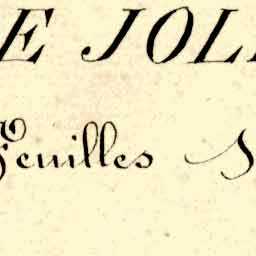 E JOLI
Feuilles S